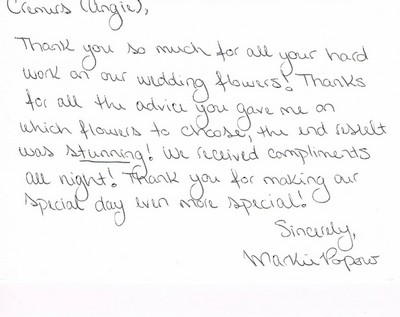 Cremers (Angie),
Thank you so much for all your hard
work on our wedding flowers! Thanks
for all the advice you gave me on
which flowers to choose, the end result
was stunning! We received compliments
all night! Thank you for making our
special day even more special!
Sincerely,
Markie Popow